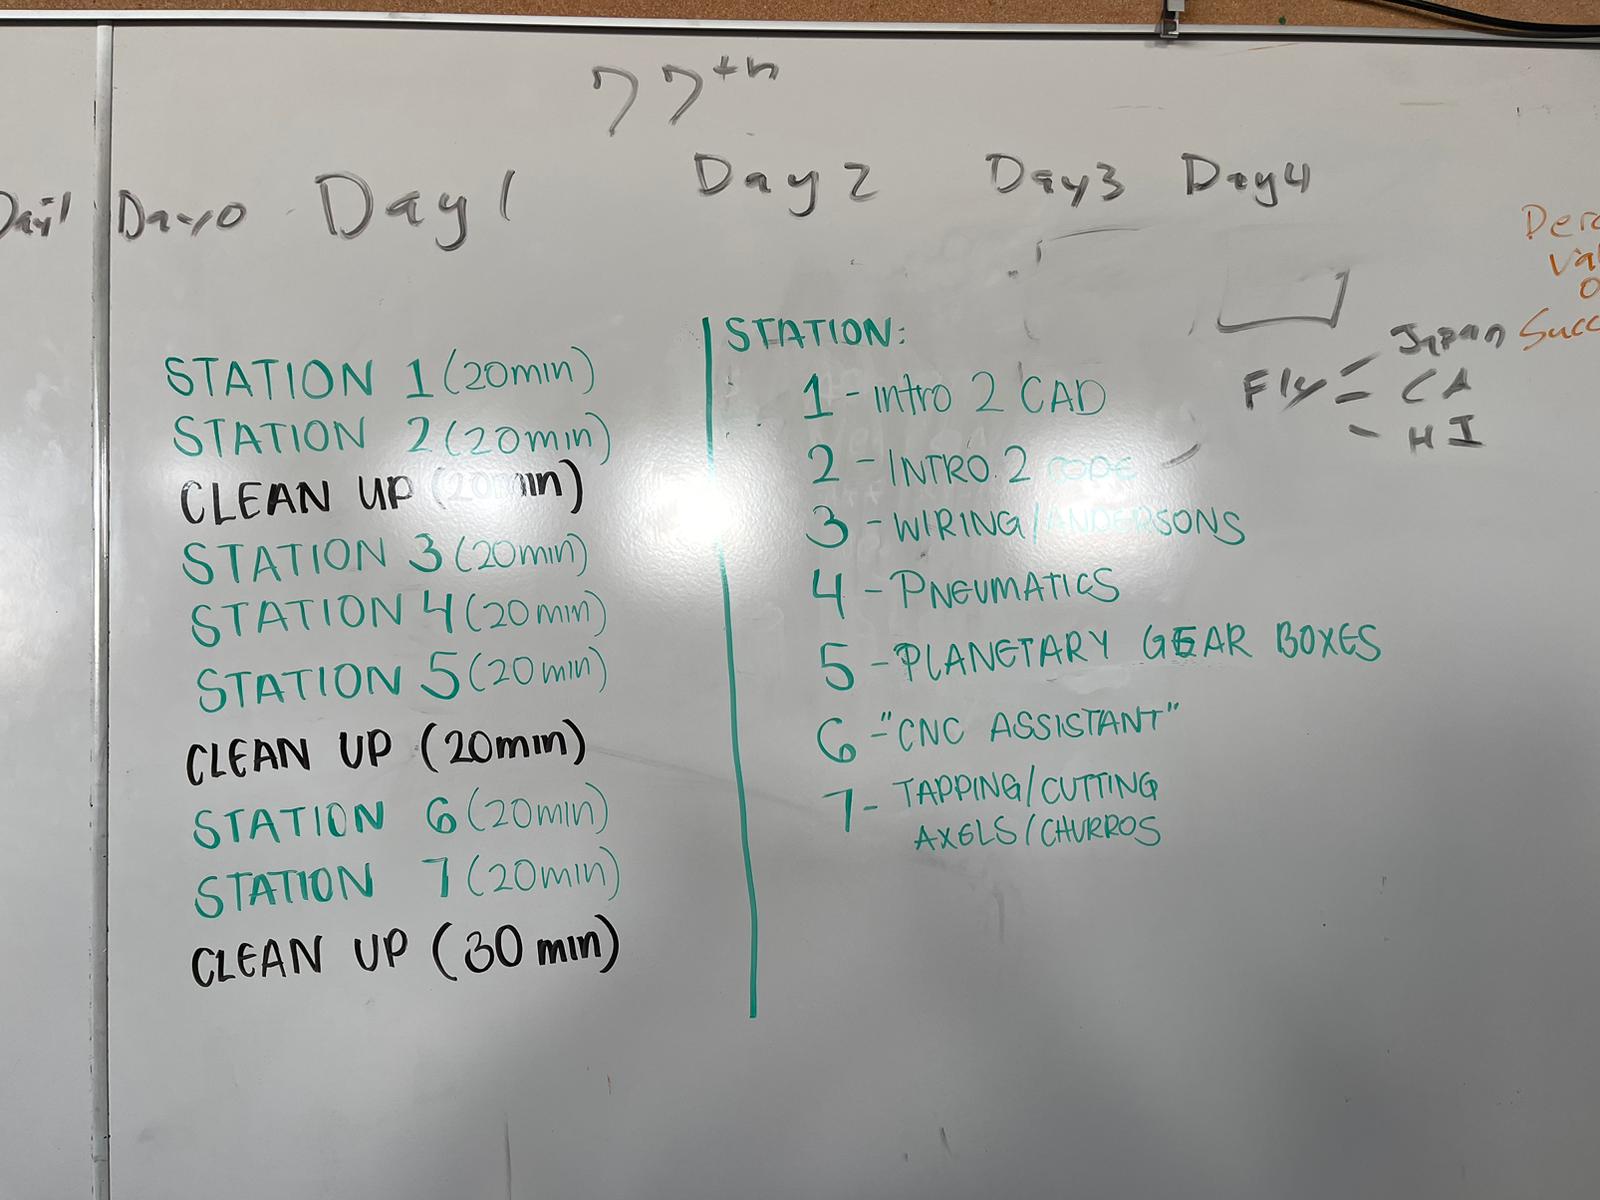 77th
Day 0 Day 1 Day 2 Day3 Day4
STATION 1 (20min)
STATION 2 (20min)
CLEAN UP (20min)
STATION 3 (20min)
STATION 4 (20min)
STATION 5 (20min)
CLEAN UP (20min)
STATION 6 (20min)
STATION 7 (20min)
CLEAN UP (30 min)
STATION:
1 - Intro 2 CAD
2 - INTRO 2 CODE
3 - WIRING/ANDERSONS
4 - PNEUMATICS
5 - PLANETARY GEAR BOXES
6 - "CNC ASSISTANT"
7 - TAPPING/CUTTING
AXELS/CHURROS
Japan
Fly CA
HI